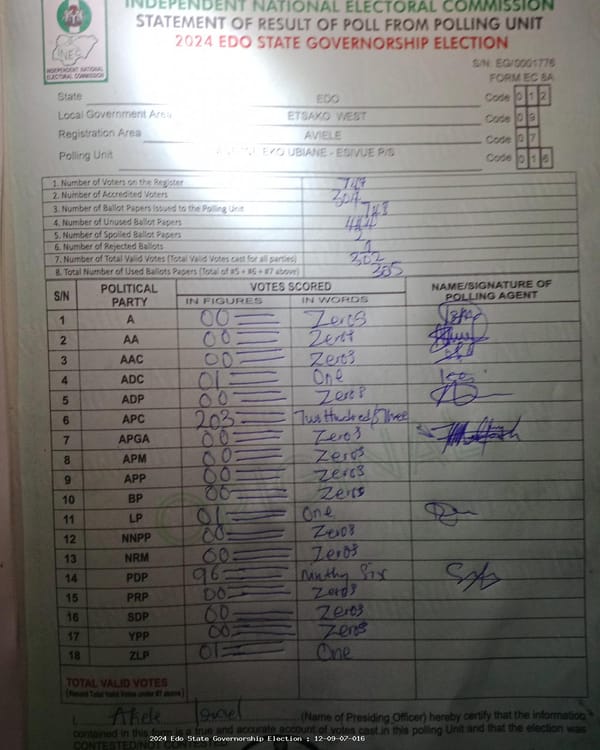 INDEPENDENT NATIONAL ELECTORAL COMMISSION
STATEMENT OF RESULT OF POLL FROM POLLING UNIT
2024 EDO STATE GOVERNORSHIP ELECTION
INEC
INDEPENDENT NATIONAL
ELECTORAL COMMISSION
S/N: EG/0001776
FORM EC 8A
State EDO Code 0 1 2
Local Government Area ETSAKO WEST Code 0 9
Registration Area AVIELE Code 0 7
Polling Unit EKO UBIANE - ESIVUE P/S Code 0 1 6
1. Number of Voters on the Register 747
2. Number of Accredited Voters 304
3. Number of Ballot Papers Issued to the Polling Unit 748
4. Number of Unused Ballot Papers
5. Number of Spoiled Ballot Papers 2
6. Number of Rejected Ballots 1
7. Number of Total Valid Votes (Total Valid Votes cast for all parties) 302
8. Total Number of Used Ballots Papers (Total of #5 + #6 + #7 above) 305
S/N POLITICAL PARTY VOTES SCORED NAME/SIGNATURE OF POLLING AGENT
IN FIGURES IN WORDS
1 A 00 Zeros
2 AA 00 Zeros
3 AAC 00 Zeros
4 ADC 01 One
5 ADP 00 Zeros
6 APC 203 Two Hundred/Three
7 APGA 00 Zeros
8 APM 00 Zeros
9 APP 00 Zeros
10 BP 00 Zeros
11 LP 01 One
12 NNPP 00 Zeros
13 NRM 00 Zeros
14 PDP 96 Ninthy Six
15 PRP 00 Zeros
16 SDP 00 Zeros
17 YPP 00 Zeros
18 ZLP 01 One
TOTAL VALID VOTES
(Record Total Valid Votes under #7 above)
I, (Name of Presiding Officer) hereby certify that the information
contained in this form is a true and accurate account of votes cast in this polling Unit and that the election was
CONTESTED/NOT CONTESTED
2024 Edo State Governorship Election : 12-09-07-016